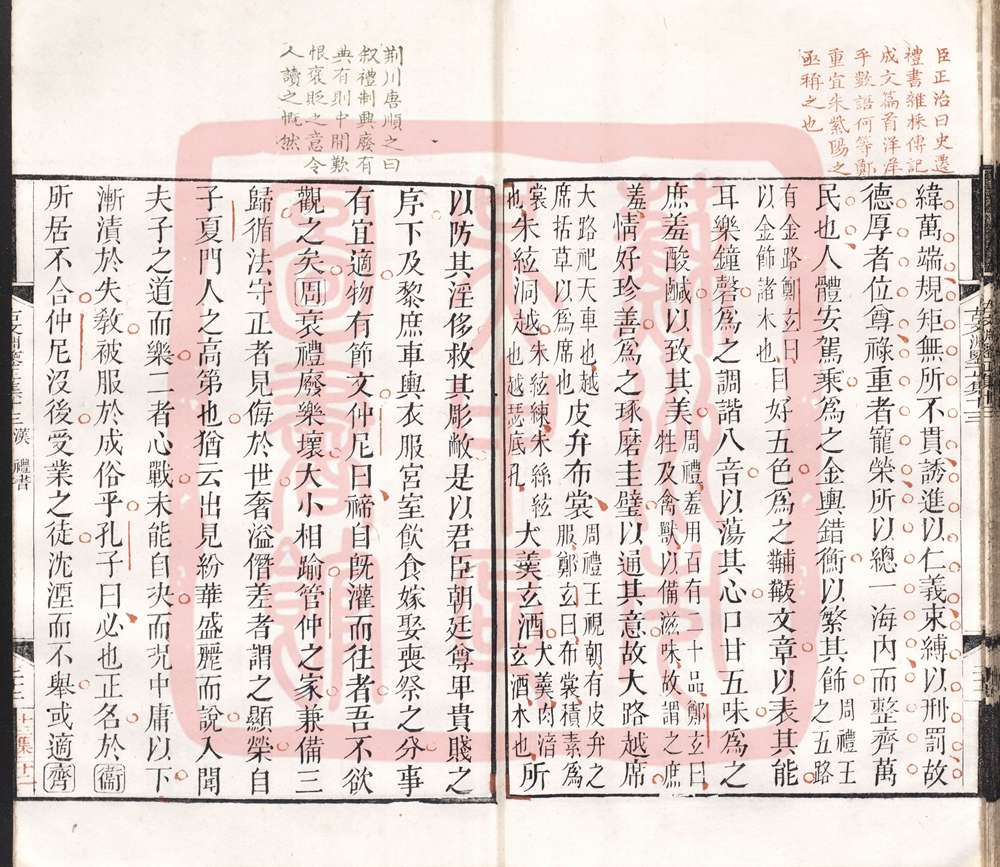 臣正治曰史遷
禮書雜採傳記
成文篇首洋洋
乎數語何等鄭
重宜朱紫陽之
亟稱之也
緯萬端規矩無所不貫誘進以仁義束縛以刑罰故
德厚者位尊祿重者寵榮所以總一海內而整齊萬
民也人體安駕乘爲之金輿錯衡以繁其飾周禮王之五路
有金路鄭玄曰以金飾諸末也目好五色爲之黼黻文章以表其能
耳樂鐘磬爲之調諧八音以蕩其心口甘五味爲之
庶羞酸鹹以致其美周禮羞用百有二十品鄭玄曰牲及禽獸以備滋味故謂之庶
羞情好珍善爲之琢磨圭璧以通其意故大路越席
大路祀天車也越席括草以爲席也皮弁布裳周禮王視朝有皮弁之服鄭玄曰布裳積素爲
裳也朱絃洞越朱絃練朱絲絃也越瑟底孔大羹玄酒大羹肉湆玄酒水也所
荆川唐順之曰
叙禮制興廢有
典有則中間歎
恨褒貶之意令
人讀之慨然
以防其淫侈救其彫敝是以君臣朝廷尊卑貴賤之
序下及黎庶車輿衣服宮室飮食嫁娶喪祭之分事
有宜適物有節文仲尼曰禘自旣灌而往者吾不欲
觀之矣周衰禮廢樂壞大小相踰管仲之家兼備三
歸循法守正者見侮於世奢溢僭差者謂之顯榮自
子夏門人之高第也猶云出見紛華盛麗而說入聞
夫子之道而樂二者心戰未能自決而況中庸以下
漸漬於失敎被服於成俗乎孔子曰必也正名於衞
所居不合仲尼沒後受業之徒沈湮而不舉或適齊
漢 禮書